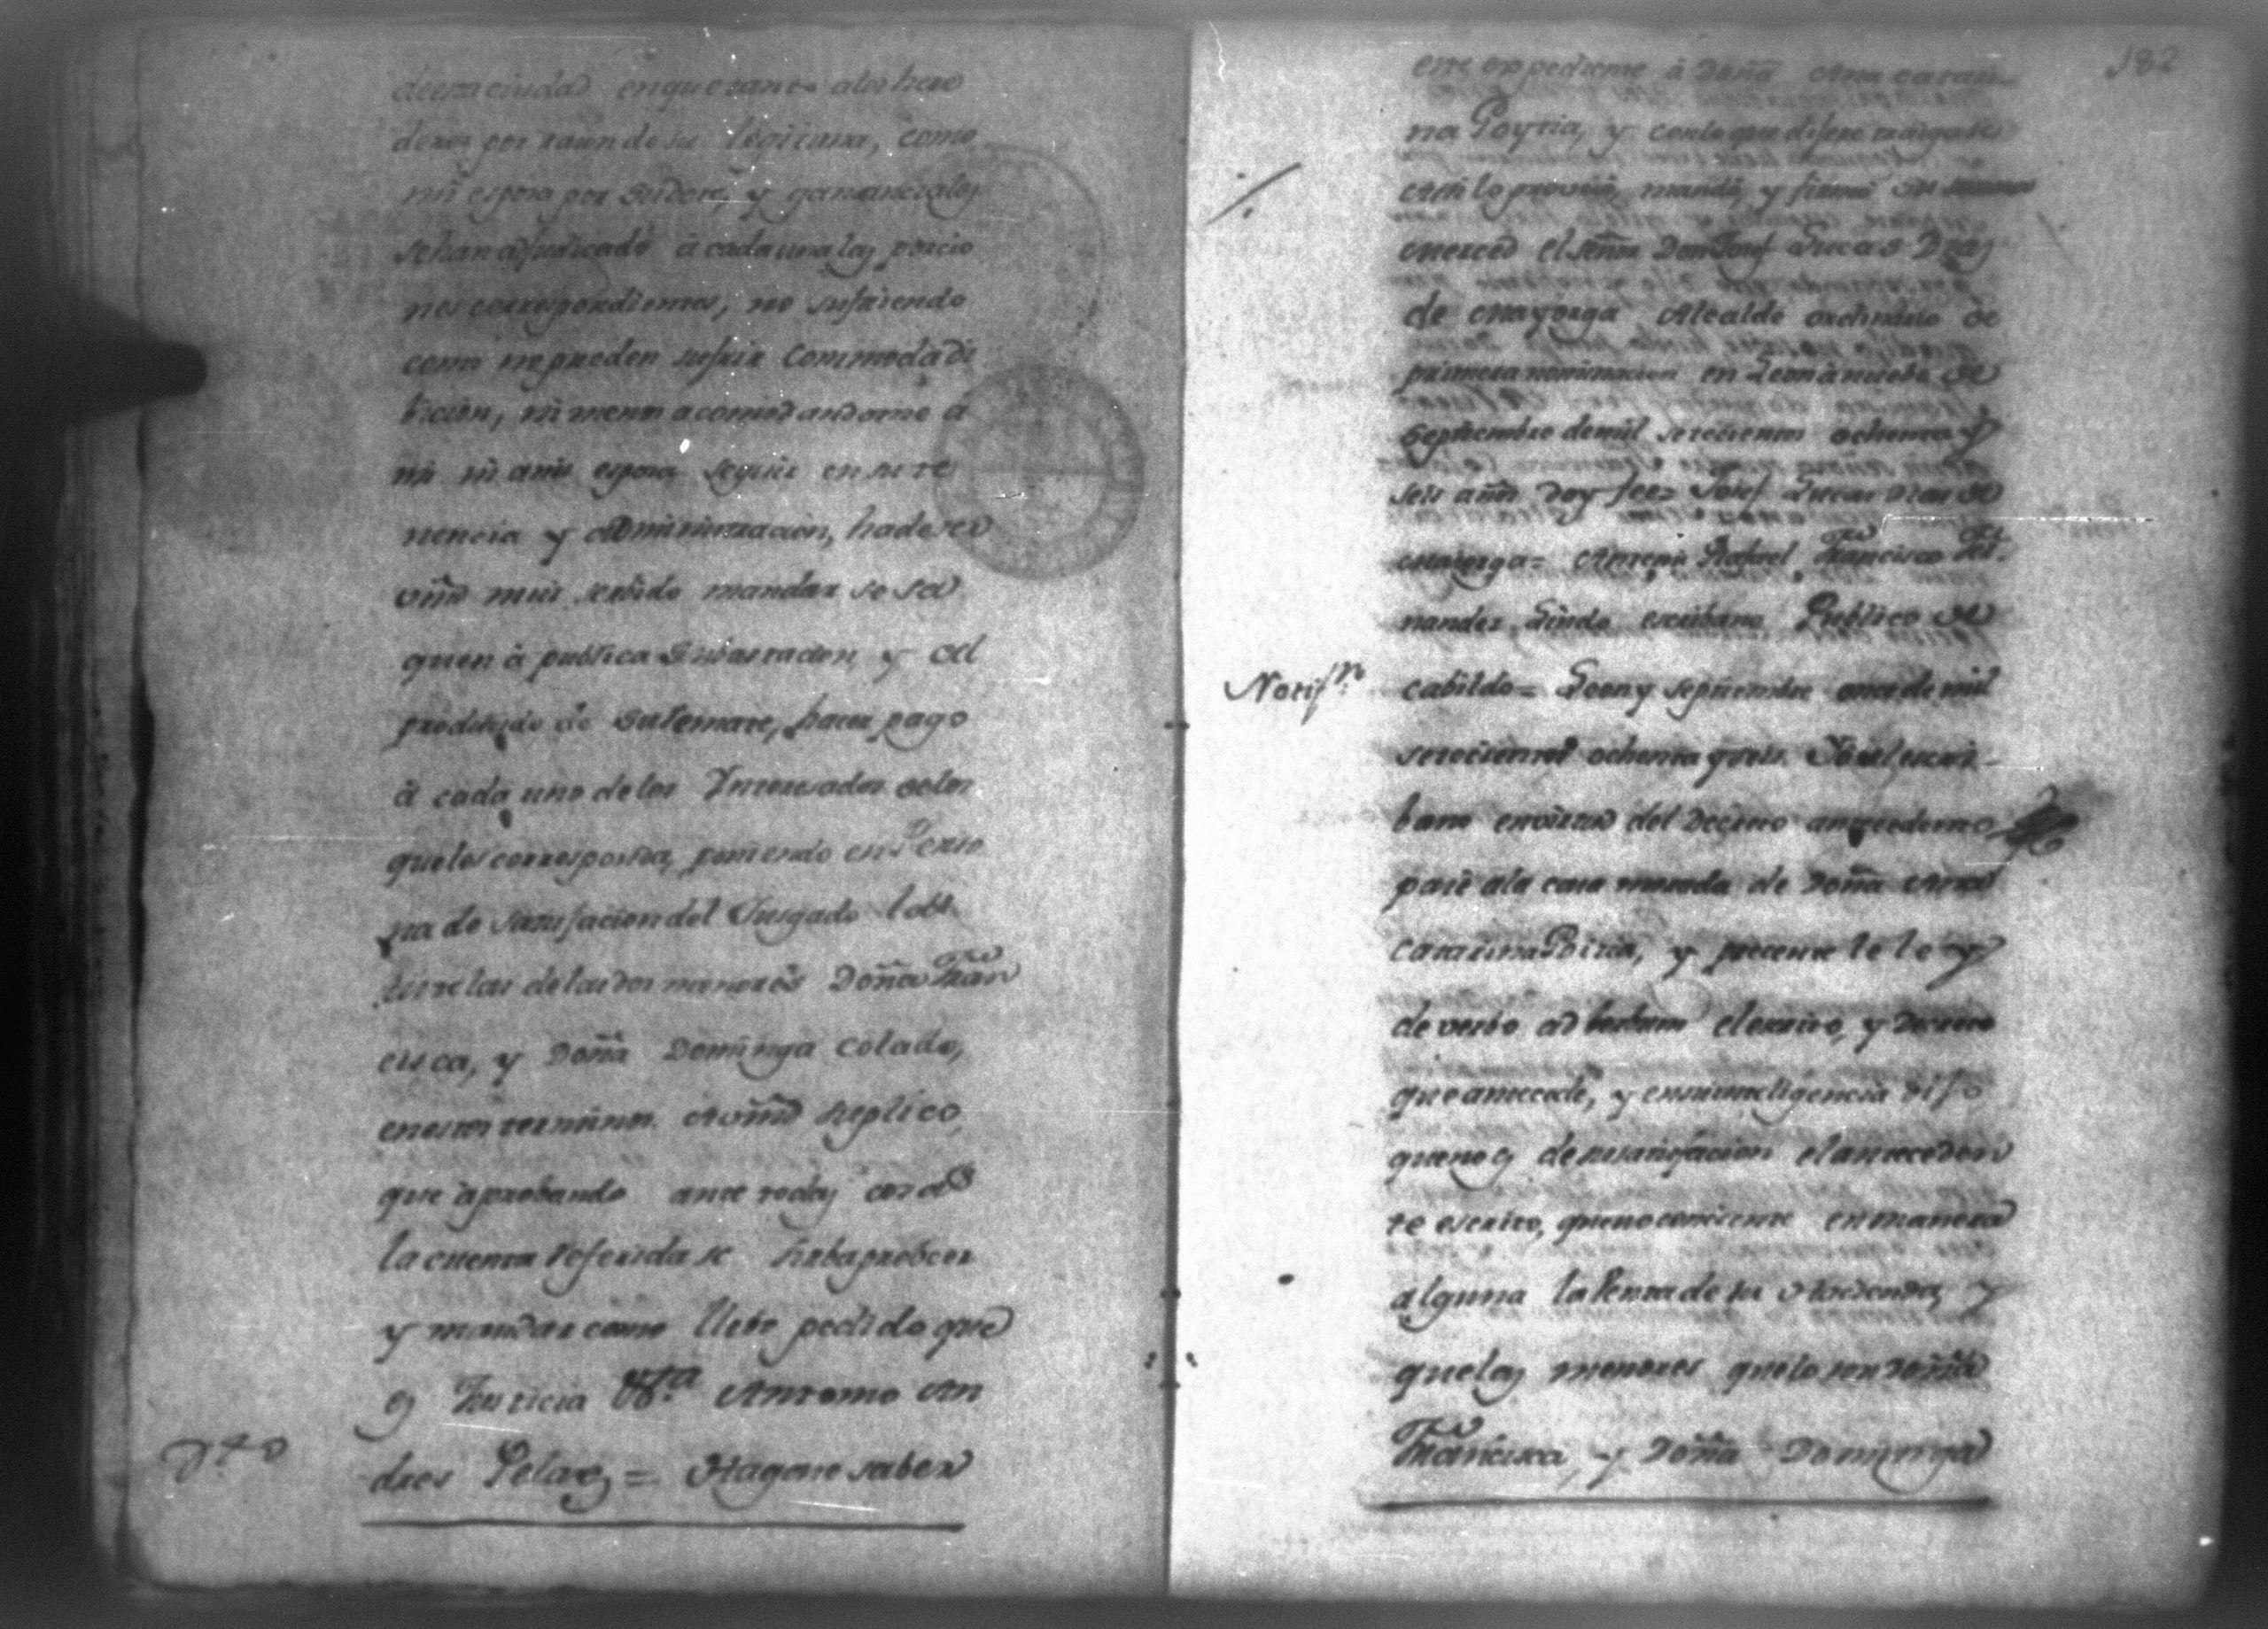 deesta ciudad en que tanto a los here
deros por razon de su legitima, como
mi esposa por su dote, y gananciales
se han adjudicado à cada una las porcio
nes correspondientes, no sufriendo
como no pueden sufrir commoda di
bicion, ni menos acomodandome à
mi ni ami esposa seguir en su te
nencia y Administracion, hade ser
vmd mui serbido mandar se sa
quen à publica Subastacion y del
producido de Su remate, hacer pago
à cada uno de los Ynteresados de lo
que les corresponda, poniendo en Perso
na de satisfacion del Jusgado las
tutelas de las dos menores Doña Fran
cisca, y Doña Dominga Colado,
en estos terminos. A vmd suplico,
que aprobando ante todas cosas
la cuenta referida se sirba probeer
y mandar como llebo pedido que
es Justicia Vt.ª Antonio An
dres Pelaes = Hagase saber
182
este expediente à Doña Ana Catari
na Poytia, y con lo que dijere traigase
asi lo proveió, mandó, y firmó su
merced el señor Don Josef Lucas Dias
de Mayorga Alcalde ordinario de
primera nominacion en Leon à nuebe de
Septiembre de mil setecientos ochenta y
seis años doy fee = Josef Lucas Dias de
Mayorga = Antemi Rafael Francisco Fer
nandez Lindo escribano Publico de
Notif.n
cabildo = Leon y septiembre once de mil
setecientos ochenta y seis. Yo el escri-
bano en virtud del Decreto antecedente
pasé ala casa morada de Doña Ana
Catarina Poitia, y precente le ley
de verbo ad berbum el escrito, y Decreto
que antecede, y en su inteligencia dijo
que no es de su satisfacion el anteceden
te escrito, que no conciente en manera
alguna la Benta de su Hacienda, y
que las menores que lo son Doña
Francisca, y Doña Dominga